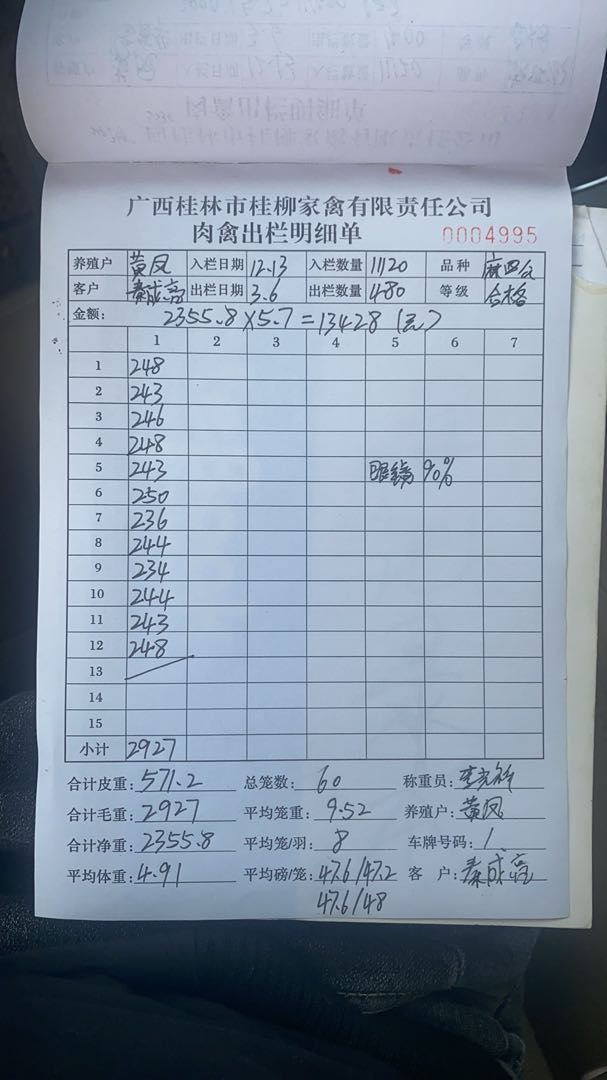 广西桂林市桂柳家禽有限责任公司
肉禽出栏明细单 0004995
养殖户 黄凤 入栏日期 12.13 入栏数量 11120 品种 麻四
客户 秦成亮 出栏日期 3.6 出栏数量 480 等级 合格
金额: 2355.8×5.7=13428(元)
1 2 3 4 5 6 7
1 248
2 243
3 246
4 248
5 243 眼镜 90%
6 250
7 236
8 244
9 234
10 244
11 243
12 248
13
14
15
小计 2927
合计皮重: 571.2 总笼数: 60 称重员:
合计毛重: 2927 平均笼重: 9.52 养殖户: 黄凤
合计净重: 2355.8 平均笼/羽: 8 车牌号码: 1
平均体重: 4.91 平均磅/笼: 47.6/47.2 客户: 秦成亮
47.6/48